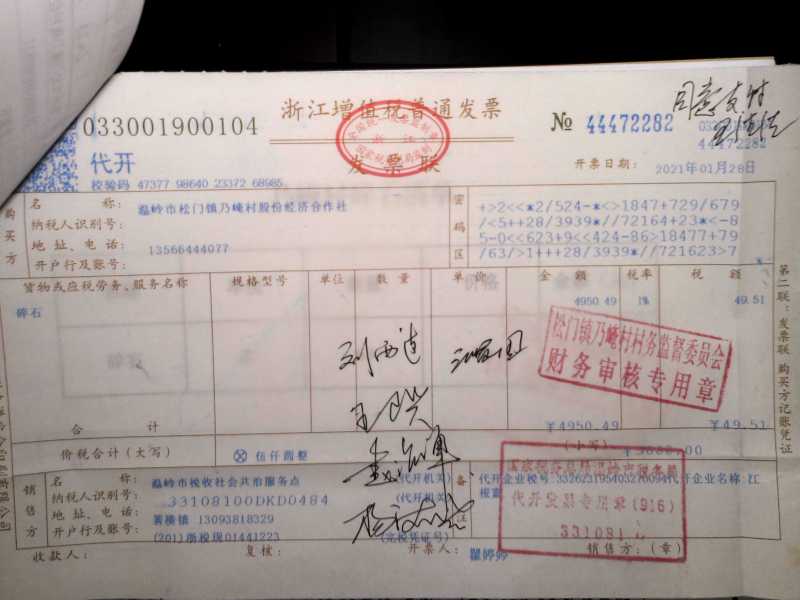 浙江增值税普通发票
033001900104
№ 44472282
同意支付
44472282
代开
发票联
校验码 47377 98640 23372 68985
开票日期: 2021年01月28日
购买方
名 称: 温岭市松门镇乃崦村股份经济合作社
纳税人识别号:
地 址、电 话: 13566444077
开户行及账号:
密码区
+>2<<*2/524-*<>1847+729/679
/<5++28/3939*//72164+23*<-8
5-0<<623+9<<424-86>18477+79
/63/>1+++28/3939*//721623>7
货物或应税劳务、服务名称 规格型号 单位 数 量 单 价 金 额 税率 税 额
碎石 4950.49 1% 49.51
松门镇乃崦村村务监督委员会
财务审核专用章
合 计 ¥4950.49 ¥49.51
价税合计(大写) ⊗ 伍仟圆整 (小写)
销售方
名 称: 温岭市税收社会共治服务点 (代开机关)
纳税人识别号: 33108100DKD0484 (代开机关)
地 址、电 话: 箬横镇 13093818329
开户行及账号: (201)浙税现01441223 (完税凭证号)
备注
代开企业税号: 代开企业名称:
代开发票专用章(916)
收款人: 复核: 开票人: 瞿婷婷 销售方:(章)
第二联:发票联 购买方记账凭证